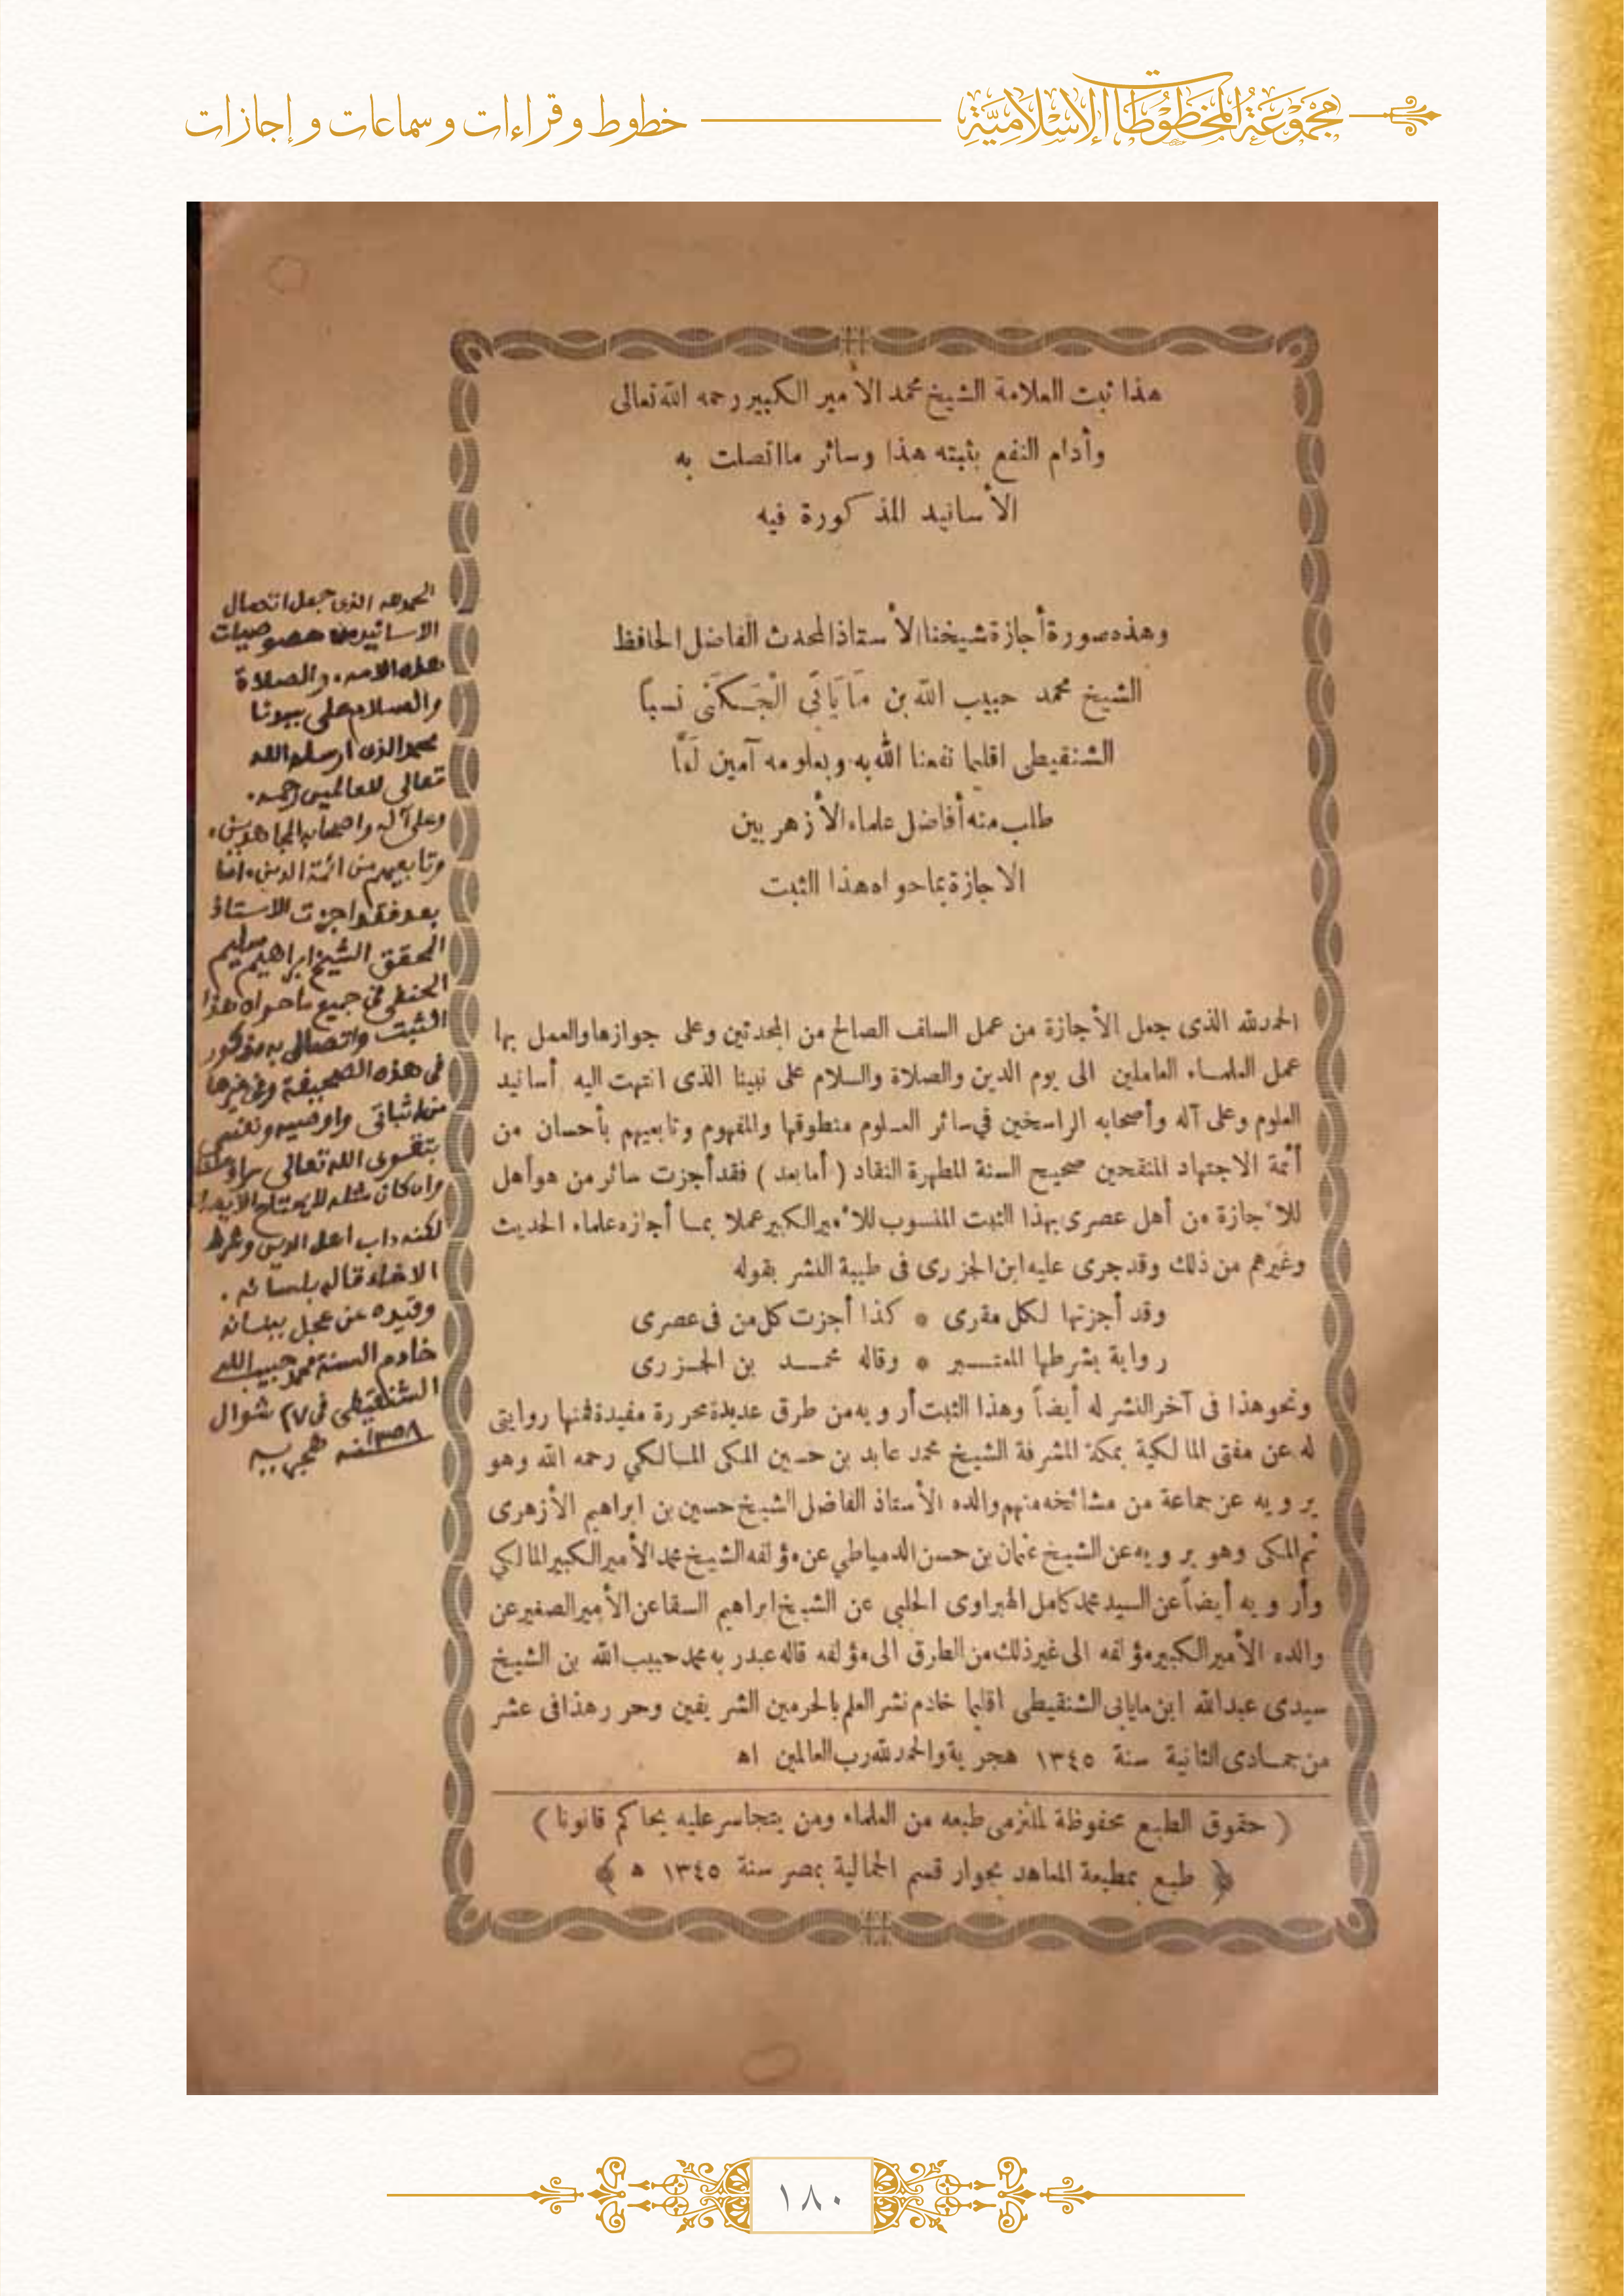 مجموعة المخطوطات الإسلامية
خطوط وقراءات وسماعات وإجازات
هذا ثبت العلامة الشيخ محمد الأمير الكبير رحمه الله تعالى
وأدام النفع بثبته هذا وسائر ما اتصلت به
الأسانيد المذكورة فيه
وهذه صورة أجازة شيخنا الأستاذ المحدث الفاضل الحافظ
الشيخ محمد حبيب الله بن مَايَابَى الْجَكَنَى نسباً
الشنقيطى اقليما نفعنا الله به وبعلومه آمين لَمَّا
طلب منه أفاضل علماء الأزهريين
الاجازة بما حواه هذا الثبت
الحمد لله الذى جعل الأجازة من عمل السلف الصالح من المحدثين وعلى جوازها والعمل بها
عمل العلماء العاملين الى يوم الدين والصلاة والسلام على نبينا الذى انتهت اليه أسانيد
العلوم وعلى آله وأصحابه الراسخين في سائر العلوم منطوقها والمفهوم وتابعيهم بأحسان من
أئمة الاجتهاد المنقحين صحيح السنة المطهرة النقاد ( أما بعد ) فقد أجزت سائر من هو أهل
للأجازة من أهل عصرى بهذا الثبت المنسوب للأمير الكبير عملا بما أجازه علماء الحديث
وغيرهم من ذلك وقد جرى عليه ابن الجزرى فى طيبة النشر بقوله
وقد أجزتها لكل مقرى * كذا أجزت كل من فى عصرى
رواية بشرطها المعتبر * وقاله محمد بن الجزرى
ونحو هذا فى آخر النشر له أيضاً وهذا الثبت أرويه من طرق عديدة محررة مفيدة فمنها روايتى
له عن مفتى المالكية بمكة المشرفة الشيخ محمد عابد بن حسين المكى المالكي رحمه الله وهو
يرويه عن جماعة من مشائخه منهم والده الأستاذ الفاضل الشيخ حسين بن ابراهيم الأزهرى
ثم المكى وهو يرويه عن الشيخ عثمان بن حسن الدمياطي عن مؤلفه الشيخ محمد الأمير الكبير المالكي
وأرويه أيضاً عن السيد محمد كامل الهبراوى الحلبي عن الشيخ ابراهيم السقا عن الأمير الصغير عن
والده الأمير الكبير مؤلفه الى غير ذلك من الطرق الى مؤلفه قاله عبد ربه محمد حبيب الله بن الشيخ
سيدى عبد الله ابن مايابى الشنقيطى اقليما خادم نشر العلم بالحرمين الشريفين وحرر هذا فى عشر
من جمادى الثانية سنة ١٣٤٥ هجرية والحمد لله رب العالمين اه
( حقوق الطبع محفوظة لملتزمى طبعه من العلماء ومن يتجاسر عليه يحاكم قانونا )
﴿ طبع بمطبعة المعاهد بجوار قسم الجمالية بمصر سنة ١٣٤٥ ه ﴾
الحمد لله الذى جعل اتصال
الاسانيد من خصوصيات
هذه الامة، والصلاة
والسلام على نبينا
محمد الذى ارسله الله
تعالى للعالمين رحمة.
وعلى آله واصحابه المجاهدين،
وتابعيهم من ائمة الدين، اما
بعد فقد اجزت الاستاذ
المحقق الشيخ ابراهيم سليم
الحنفى فى جميع ما حواه هذا
الثبت واتصالى به مذكور
فى هذه الصحيفة وفى غيرها
من اثباتى واوصيه ونفسى
بتقوى الله تعالى
وان كان مثله لا يحتاج
لكنه داب اهل الدين وشرط
قاله بلسانه.
وقيده عن عجل ببنانه
خادم السنة محمد حبيب الله
الشنقيطى فى ٢٧ شوال
١٣٥٨ سنه هجريه
١٨٠